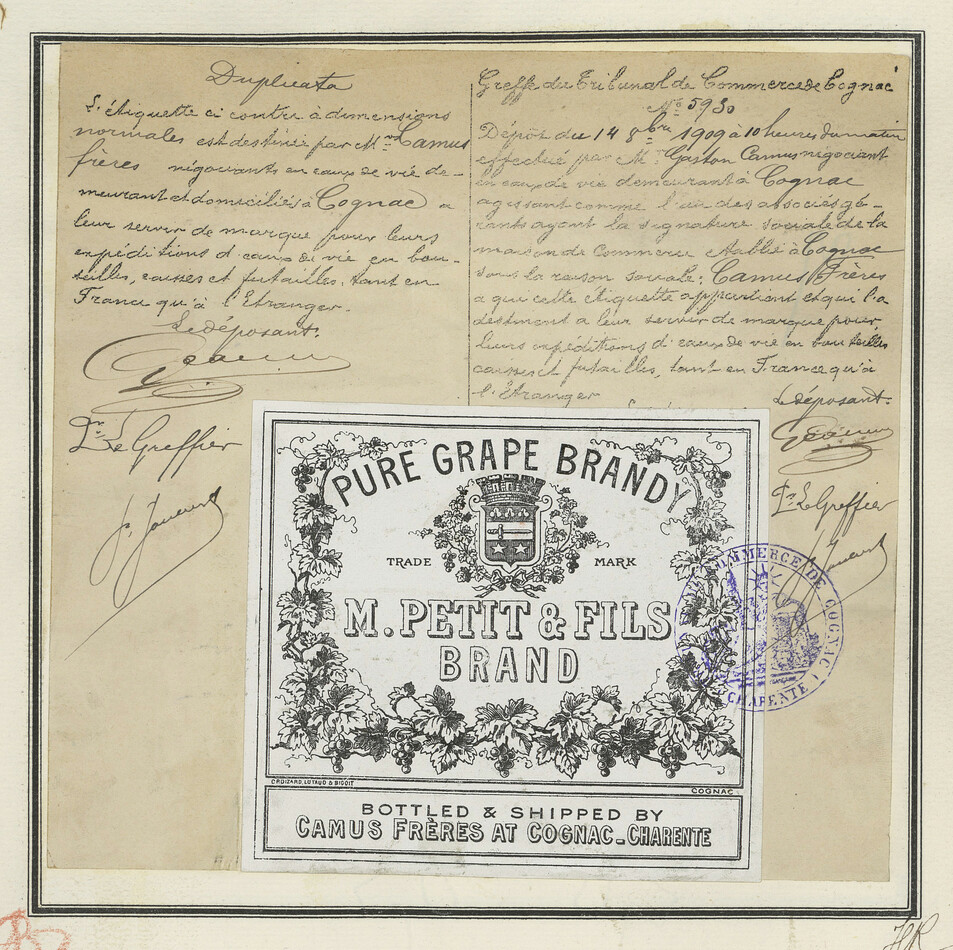 Duplicata
L'étiquette ci contre à dimensions
normales est destinée par Mrs Camus
frères négociants en eaux de vie de-
meurant et domiciliés à Cognac a
leur servir de marque pour leurs
expéditions d'eaux de vie en bou-
teilles, caisses et futailles, tant en
France qu'à l'Etranger.
Le déposant.
Pr Le Greffier
Greffe du Tribunal de Commerce de Cognac
No 5930
Dépôt du 14 8bre 1909 à 10 heures du matin
effectué par Mr Gaston Camus négociant
en eaux de vie demeurant à Cognac
agissant comme l'un des associés gé-
rants ayant la signature sociale de la
maison de Commerce établie à Cognac
sous la raison sociale: Camus Frères
a qui cette étiquette appartient et qui l'a
destinent a leur servir de marque pour
leurs expéditions d'eaux de vie en bouteilles
caisses et futailles, tant en France qu'à
l'Etranger
Le déposant.
Pr Le Greffier
PURE GRAPE BRANDY
TRADE MARK
M. PETIT & FILS
BRAND
CROIZARD, LUTAUD & BIGOIT
COGNAC
BOTTLED & SHIPPED BY
CAMUS FRÈRES AT COGNAC_CHARENTE
COMMERCE DE COGNAC
CHARENTE